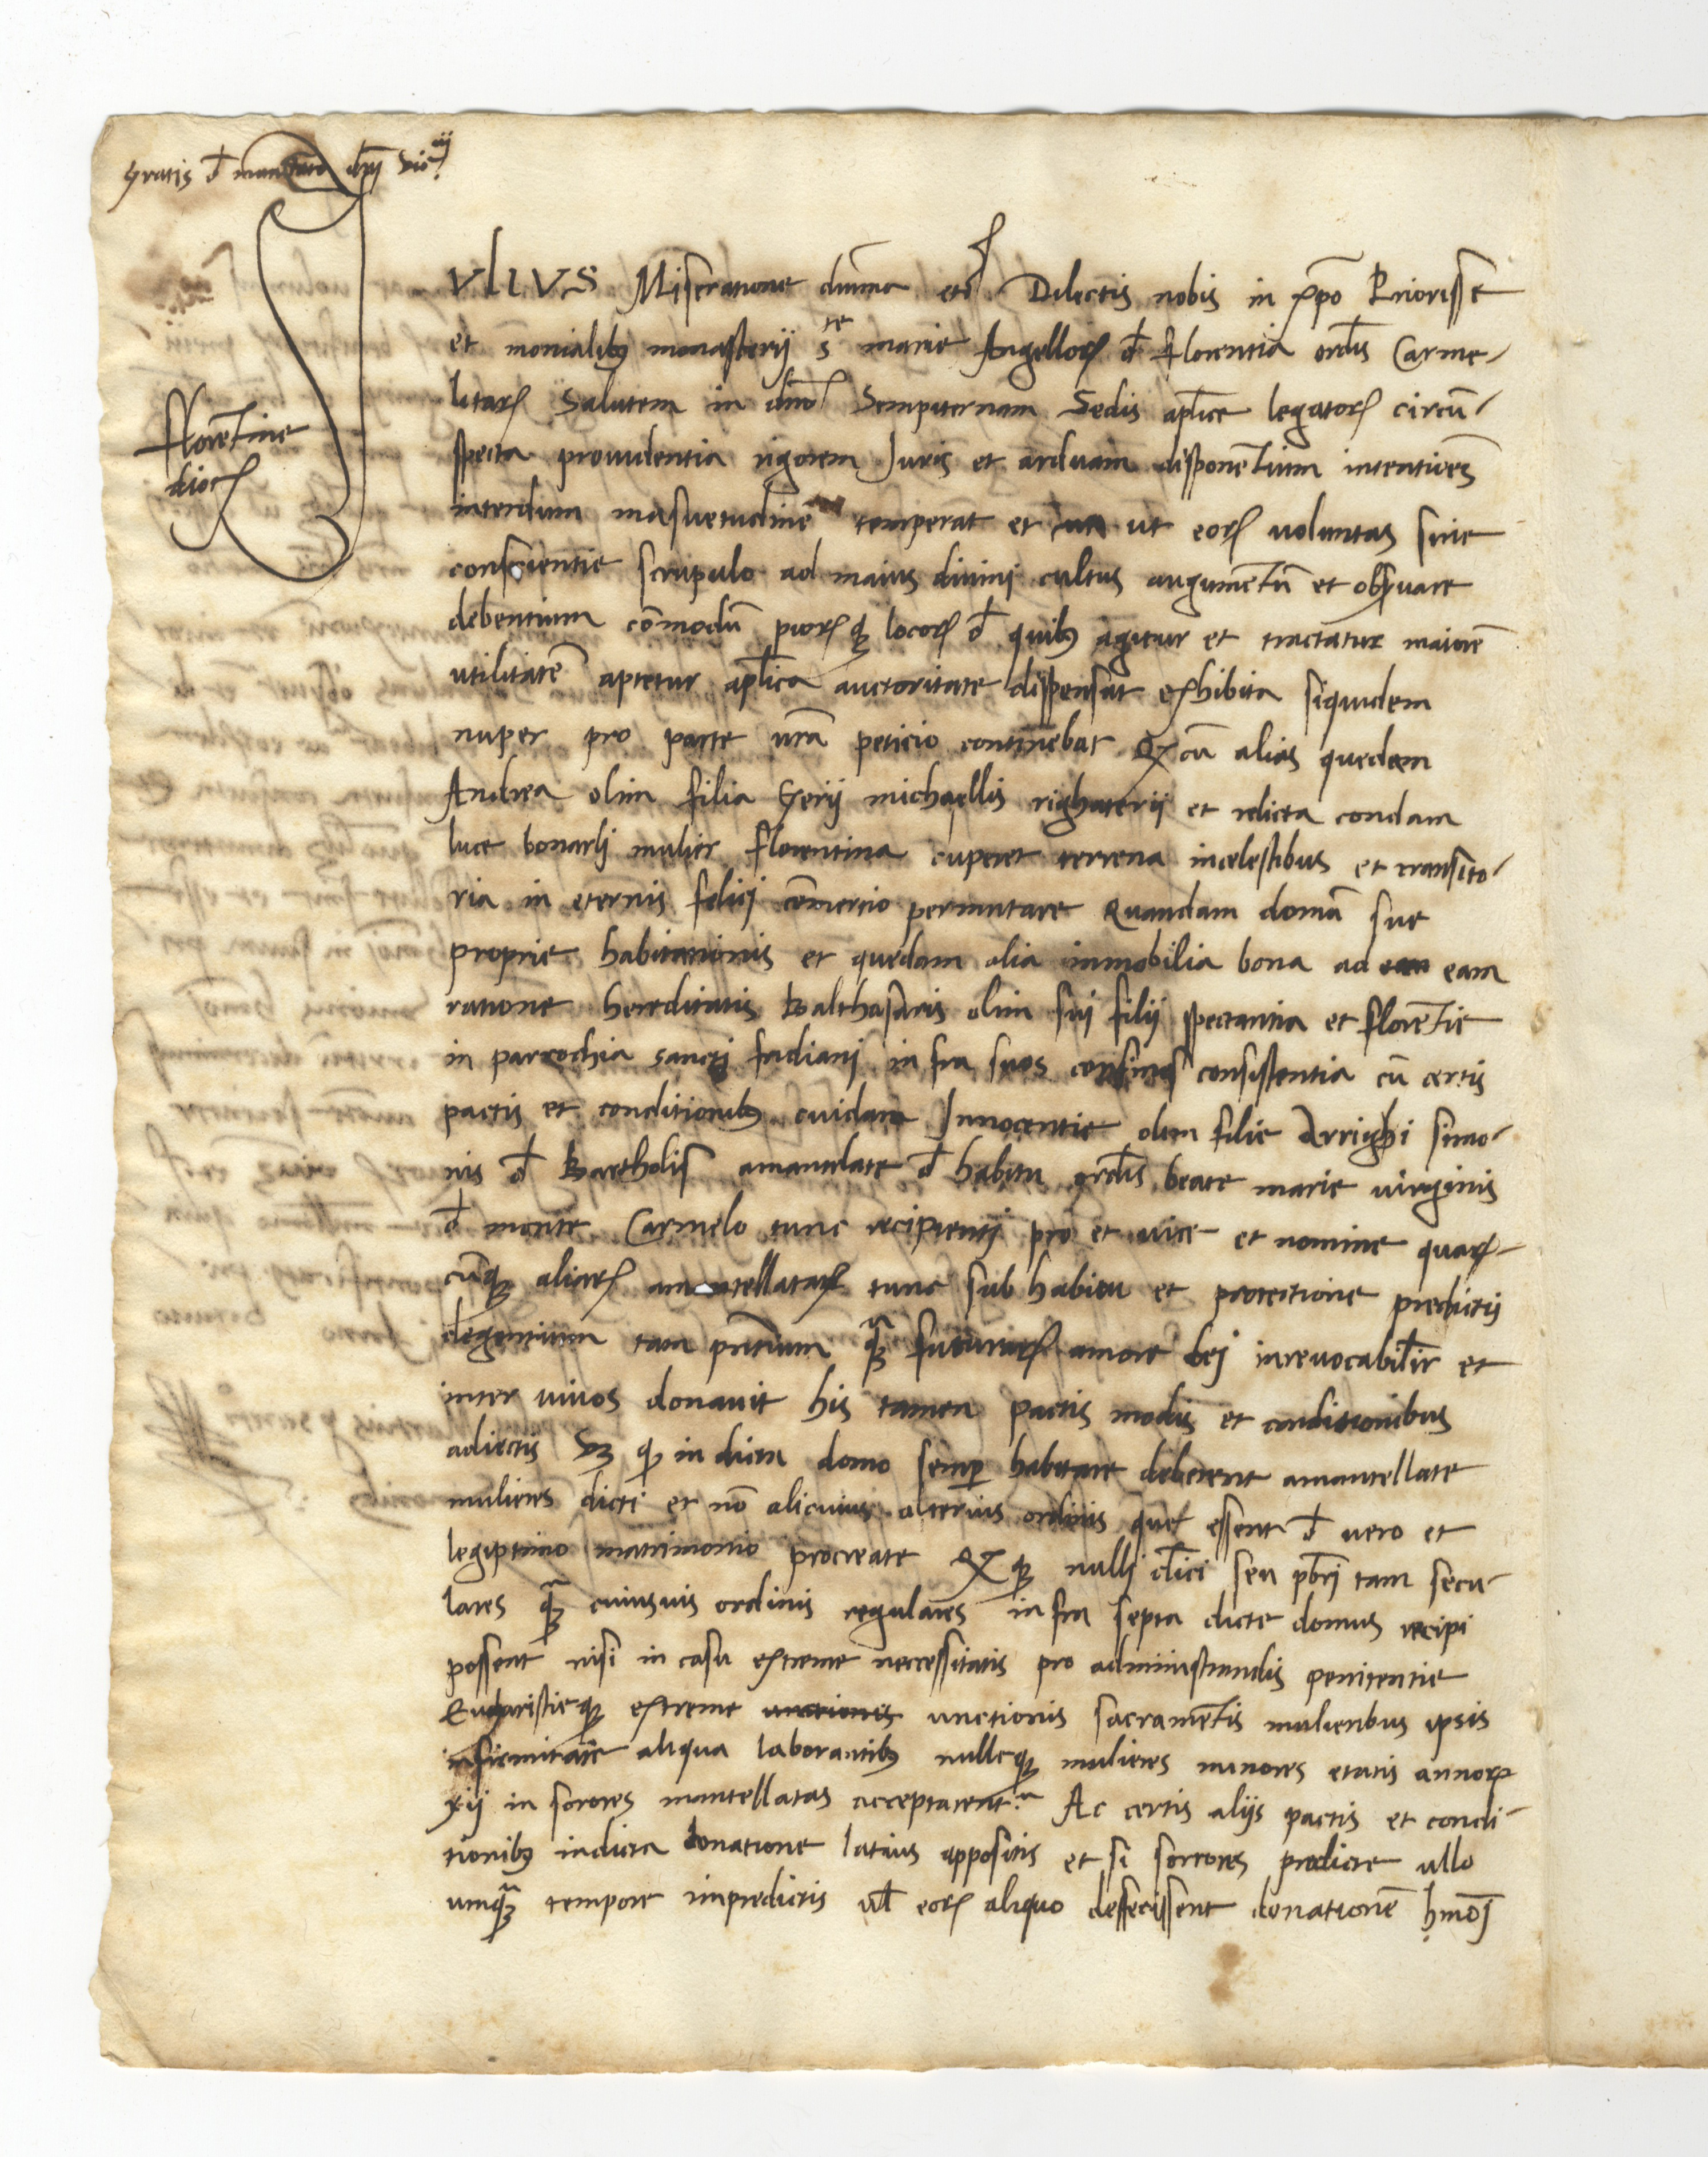 Gratis d̄ mandato dn̄i
florentine
dioc̄
IVLIVS Miseratione diuina etc̄ Dilectis nobis in xp̄o Priorisse
et monialib9 monasterij s^te marie Angelloꝝ d̄ florentia ordīs Carme-
litaꝝ Salutem in dn̄o Sempiternam Sedis ap̄lice legatoꝝ circū-
specta prouidentia rigorem Juris et arduam disponentium
interdum masuetudine temperat et ut eoꝝ uoluntas sine
conscientie scrupulo ad maius diuini cultus augumentū et obseruare
debentium cōmodū pioꝝ qꝫ locoꝝ d̄ quib9 agitur et tractatur maiorē
utilitatē aptetur ap̄lica auctoritate dispensat exhibita siquidem
nuper pro parte ur̄a peticio continebat Qꝫ cū alias quedem
Andrea olim filia Gerij michaellis righaterij et relicta condam
luce bonarlj mulier florentina cuperet terrena incelestibus et transito-
ria in eternis felici cōmercio permutare Quandam domū sue
proprie habitationis et quedam alia immobilia bona ad eam
ratione hereditatis Balthasaris olim sui filij spectantia et florentie
in parrochia sancti fridiani infra suos confines consistentia cū certis
pactis et conditionib9 cuidam Innocentie olim filie Arrighi simo-
nis d̄ Bartholis amantelate d̄ habitu ordīs beate marie uirginis
d̄ monte Carmelo tunc recipientj pro et uice et nomine quaꝝ-
cūqꝫ aliaꝝ amantellataꝝ tunc sub habitu et protectione predictis
degentium tam pn̄tium qꝫ̄ futuraꝝ amore dej inreuocabilr̄ et
inter uiuos donauit his tamen pactis modis et conditionibus
adiectis Sꝫ qꝫ in dicta domo semp̄ habitare deberent amantellate
mulieres dicti et nō alicuius alterius ordinis que essent d̄ uero et
legiptimo matrimonio procreate Qꝫ qꝫ nullj cl̄ici seu pb̄ri tam secu-
lares qꝫ̄ cuiusuis ordinis regulares infra septa dicte domus recipi
possent nisi in casu extreme neccessitatis pro administrandis penitentie
Eucharistieqꝫ extreme unctionis unctionis sacramentis mulieribus ipsis
infirmitate aliqua laborantib9 nulleqꝫ mulieres minores etatis annoꝝ
xij in sorores mantellatas acceptarent.̄ Ac certis alijs pactis et condi-
tionib9 indicta donatione latius appositis et si sorores predicte ullo
umqꝫ̄ tempore impredictis ul̄ eoꝝ aliquo deffecissent donationē hmōj